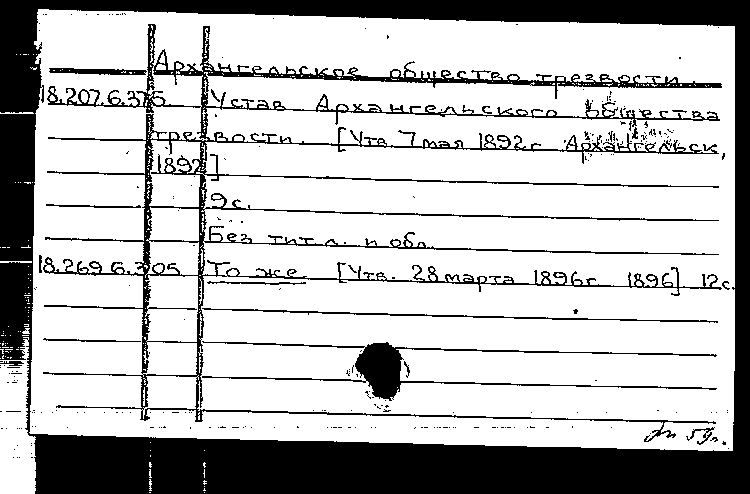 Архангельское общество трезвости.
18.207.6.375 Устав Архангельского общества
трезвости. [Утв. 7 мая 1892 г. Архангельск,
1892]
9 с.
Без тит. л. и обл.
18.269.6.305 То же [Утв. 28 марта 1896 г. 1896] 12 с.
59 г.